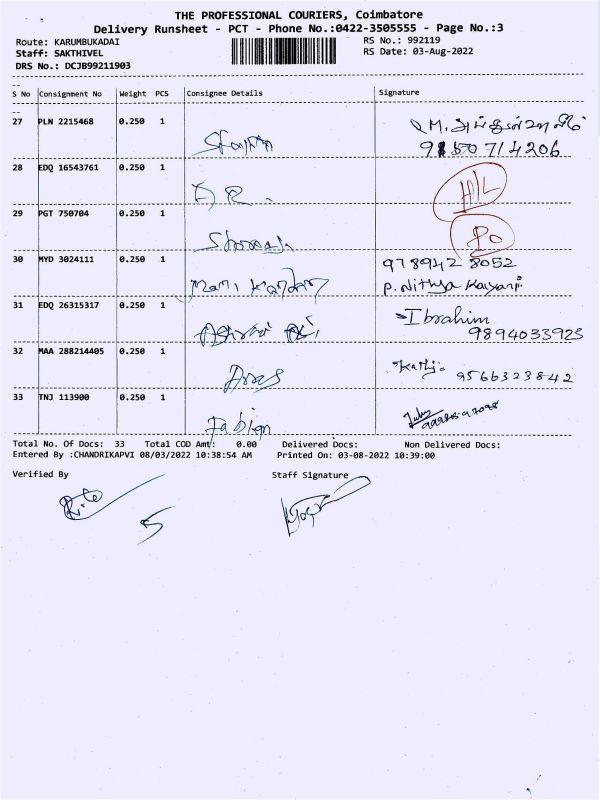 THE PROFESSIONAL COURIERS, Coimbatore
Delivery Runsheet - PCT - Phone No.:0422-3505555 - Page No.:3
Route: KARUMBUKADAI
RS No.: 992119
Staff: SAKTHIVEL
RS Date: 03-Aug-2022
DRS No.: DCJB99211903
S No Consignment No Weight PCS Consignee Details Signature
27 PLN 2215468 0.250 1
28 EDQ 16543761 0.250 1 D R. H/L
29 PGT 750704 0.250 1
30 MYD 3024111 0.250 1 Mani Kandan 978942 8052
P. Nithya Kalyani
31 EDQ 26315317 0.250 1 Ibrahim
9894033923
32 MAA 288214405 0.250 1 9566323842
33 TNJ 113900 0.250 1 Fabian
Total No. Of Docs: 33 Total COD Amt: 0.00 Delivered Docs: Non Delivered Docs:
Entered By :CHANDRIKAPVI 08/03/2022 10:38:54 AM Printed On: 03-08-2022 10:39:00
Verified By Staff Signature